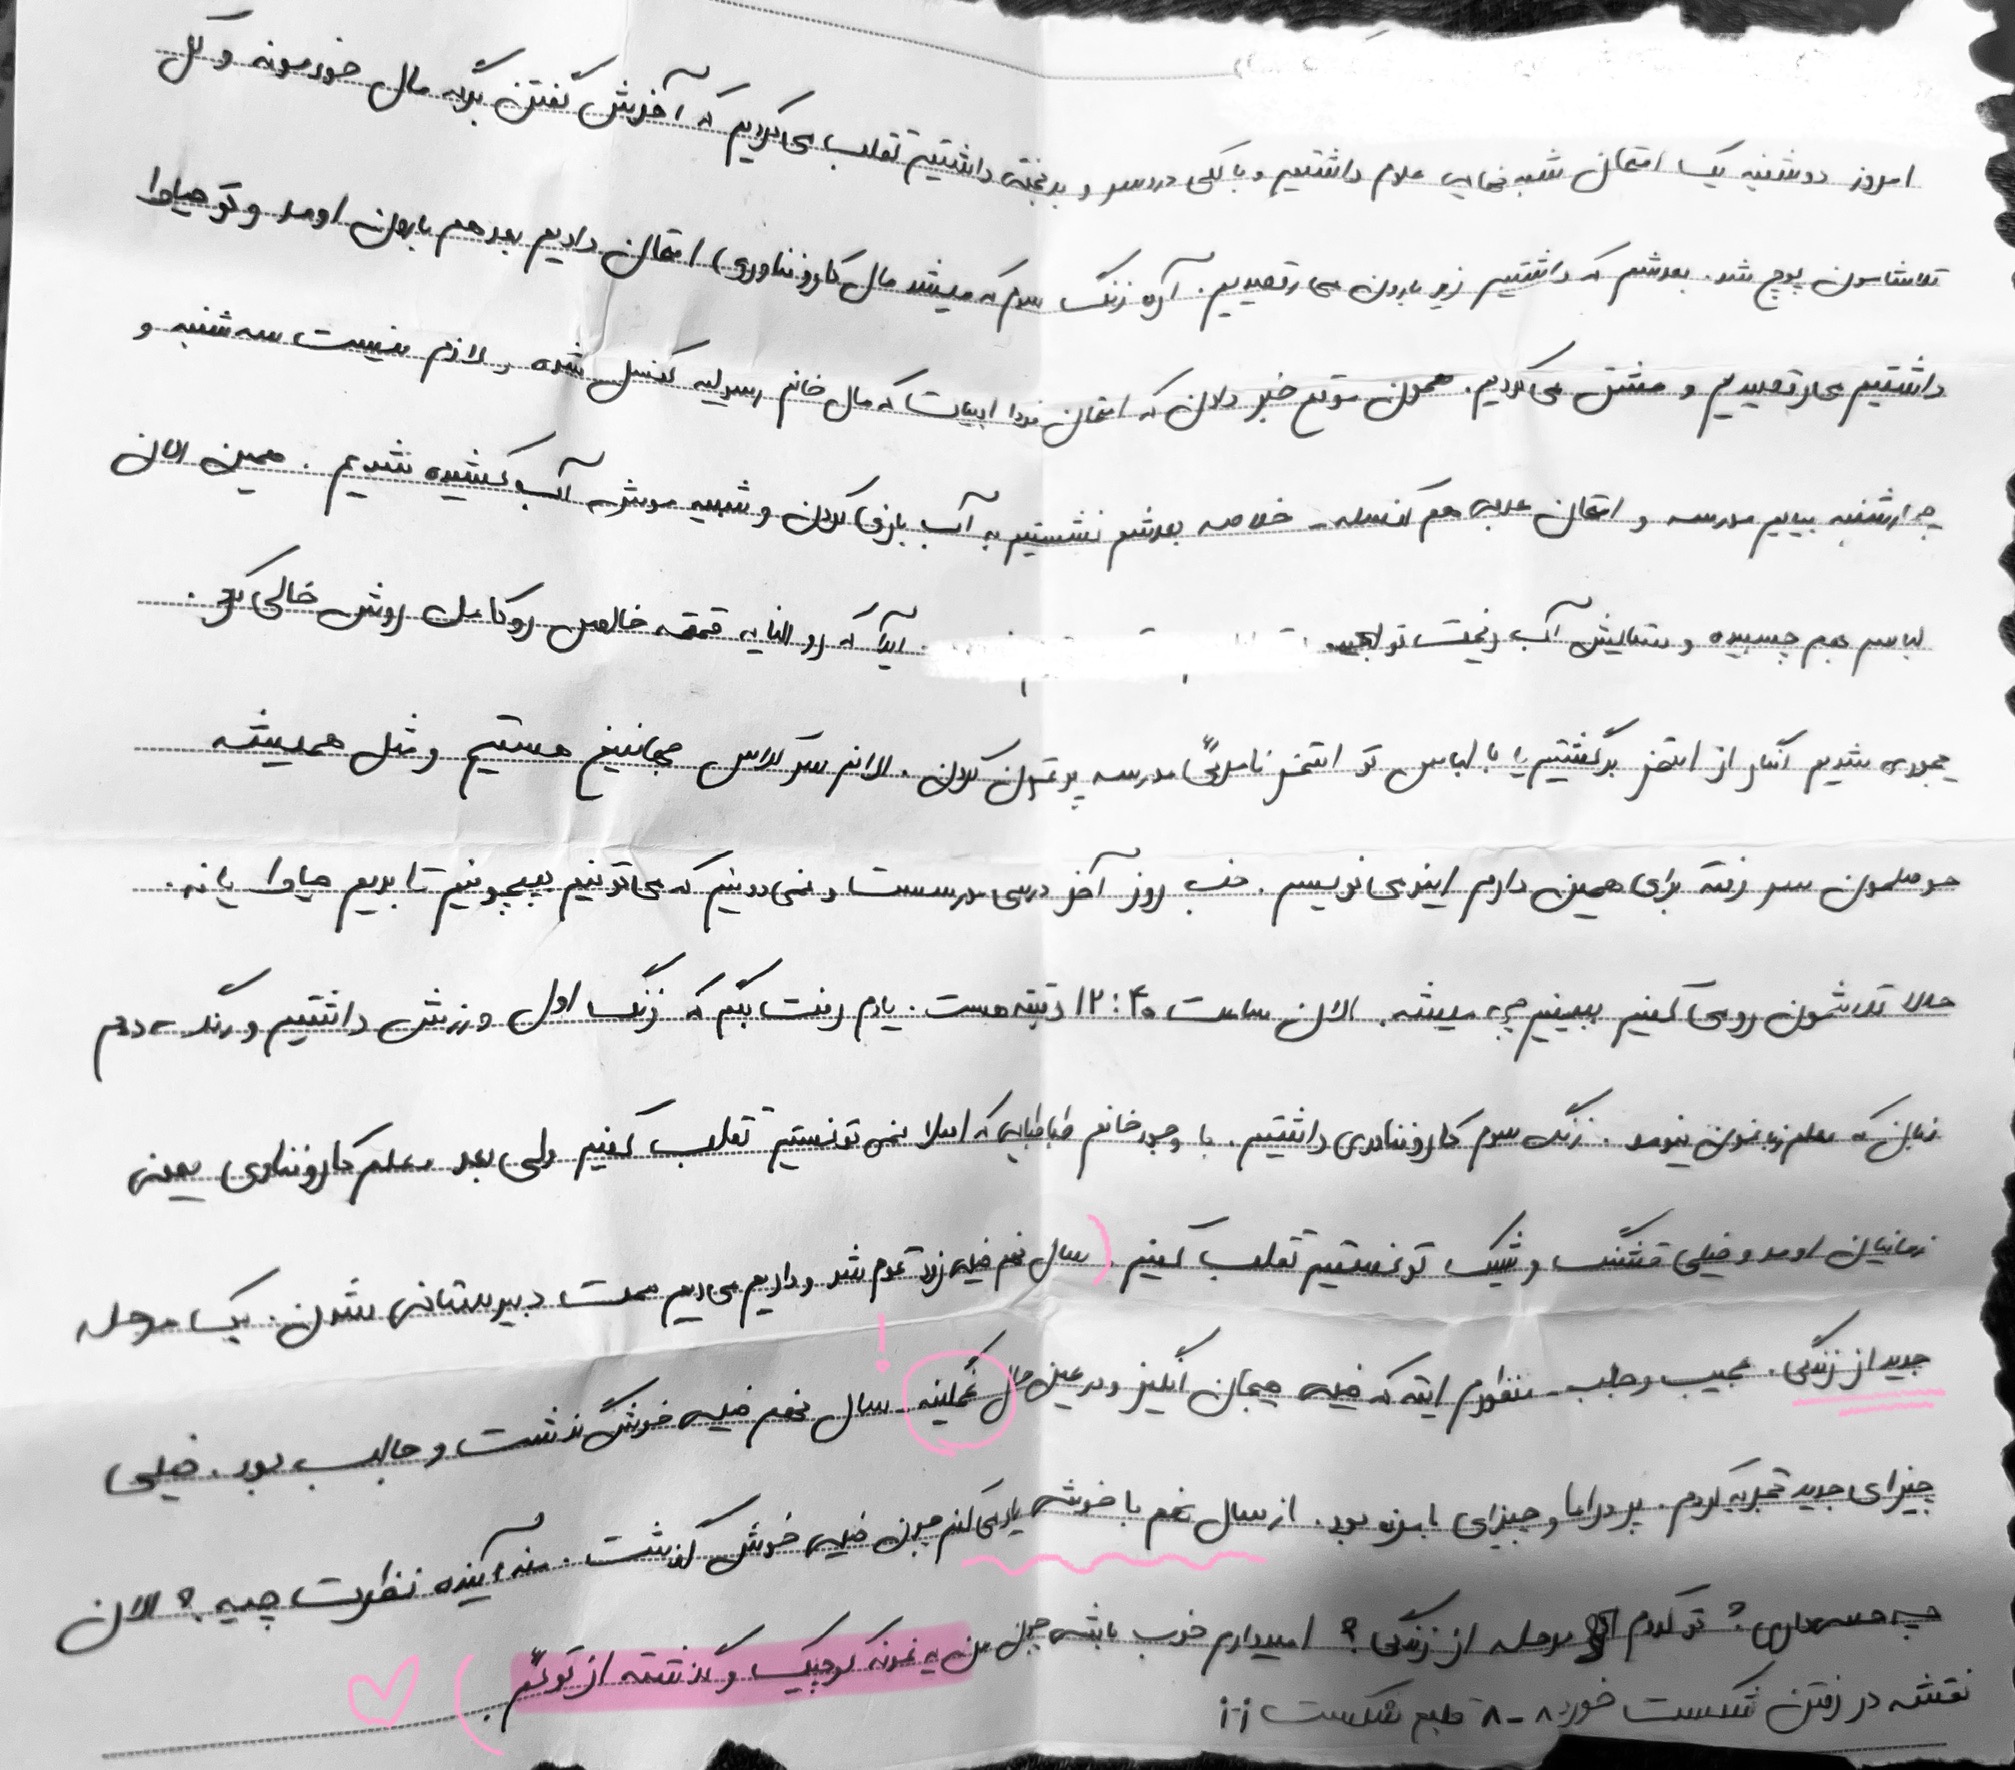 امروز دوشنبه یک امتحان شبه نهایی علوم داشتیم و با کلی دردسر و بدبختی داشتیم تقلب می‌کردیم که آخرش گفتن برگه مال خودمونه و کل
تلاشامون پوچ شد. بعدشم که داشتیم زیر بارون می‌رقصیدیم. آره زنگ سوم که میشد مال کاروفناوری امتحان دادیم بعد هم بارون اومد و تو حیاط
داشتیم می‌رقصیدیم و مشق می‌کردیم. همون موقع خبر دادن که امتحان فردا ادبیات که مال خانم کنسل شده و لازم نیست سه شنبه و
چهارشنبه بیایم مدرسه و امتحان عربی هم کنسله. خلاصه بعدشم نشستیم به آب بازی کردن و شبیه موش آب کشیده شدیم. همین الان
لباسم بهم چسبیده و ستایش آب ریخت تو آیدا که رو النا یه قمقمه خالص رو کامل روش خالی کرد.
جوری شدیم انگار از استخر برگشتیم با لباس تو استخر مدرسه کردن. الان سر کلاس هستیم و مثل همیشه
حوصلمون سر رفته برای همین دارم اینو می‌نویسم. خب روز آخر درسی مدرسست و نمی‌دونیم که می‌تونیم بپیچونیم تا بریم حیاط یا نه.
حالا تلاشمون رو می‌کنیم ببینیم چی میشه. الان ساعت ۱۲:۴۰ دقیقه هست. یادم رفت بگم که زنگ اول ورزش داشتیم و زنگ دوم
زبان که معلم زبانمون نیومد. زنگ سوم کاروفناوری داشتیم. با وجود خانم طباطبایی که اصلا نمی‌تونستیم تقلب کنیم ولی بعد معلم کاروفناوری یعنی
زمانیان اومد و خیلی قشنگ و شیک تونستیم تقلب کنیم. (سال نهم خیلی زود تموم شد و داریم می‌ریم سمت دبیرستانی شدن. یک مرحله
جدید از زندگی. عجیب و جالب. منظورم اینه که خیلی هیجان انگیز و در عین حال غمگینه. ! سال نهم خیلی خوش گذشت و جالب بود. خیلی
چیزای جدید تجربه کردم. پر دراما و چیزای بامزه بود. از سال نهم با خوشی یاد می‌کنم چون خیلی خوش گذشت. منه آینده نظرت چیه؟ الان
چه حسی داری؟ تو کدوم مرحله از زندگی؟ امیدوارم خوب باشی چون من یه نمونه کوچیک و گذشته از توعم.)
نقشه در رفتن شکست خورد ۸-۸ قلبم شکست i-i